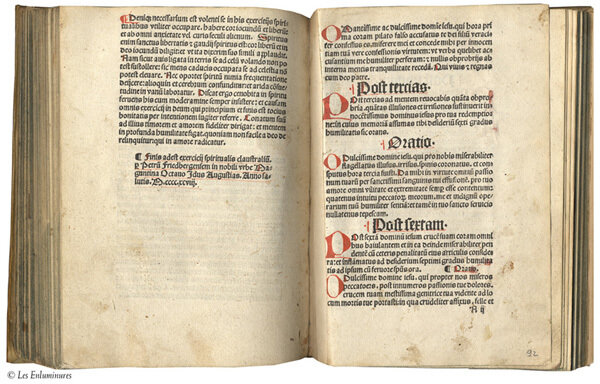 Deniq̃ necessarium est volenti se in his exercitijs spiri-
tualibus vtiliter occupare. habere cor iocundũ et liberũ
et ab omni anxietate vel curis seculi alienum. Spiritus
enim sanctus libertatis et gaudij spiritus est: cor liberũ et in
deo iocundũ diligit: vt ita dixerim sub filio a similandũ.
Nam sicut auis ligata in terris se ad celũ volando non po-
test sustollere: sic mens caducis occupata se ad celestia nõ
potest eleuare. Nec oportet spiritũ nimia frequentatione
deijcere: alioquin et cerebrum consumitur: et arida cõsue-
tudine in vanũ laboratur. Discat ergo
fructus his cum moderamine semper insistere: et causam
omnis exercitij in deum qui principium et finis est totius
bonitatis per intentionem iugiter referre. Conatum suũ
ad illius timorem et amorem fideliter dirigat: et mentem
in profunda humilitate figat. quoniam non facile a deo de-
relinquitur qui in amore radicatur.
¶ Finis adest exercitij spiritualis claustraliũ.
per Petrũ Friedbergensem in nobili vrbe Ma-
guntina Octauo Idus Augustias. Anno sa-
lutis. M.cccc.xcvij.
O Amantissime ac dulcissime domine iesu. qui hora pri-
ma coram pilato falso accusatus te dei filiũ verací-
ter confessus es. miserere mei et concede mihi per innocen-
tiam tuam vere virtutis constantiam. vt confusionem et ac-
cusantium me humiliter perferam: et nullis obprobrijs ab
interna mentis tranquillitate recedã. Qui viuis et regnas
cum deo patre.
Post tercias.
Post tercias ad mentem reuocabis quãta obpro-
bria. quãtas illusiones et irrisiones sustinuerit in-
nocẽtissimus dominus iesus pro tua redemptio-
ne: in cuius memoriã assimas tibi desideriũ sexti gradus
humilitatis sic orans.
Oratio.
O Dulcissime domine iesu. qui pro nobis miserabiliter
flagellatus illusus. irrisus. spinis coronatus. et con-
sputus hora tertia fuisti. Da mihi in virtute omni passio-
num tuarũ per sanctissimi sanguinis tui effusionẽ. pro tuo
amore omni vilitate et extremitate semp esse contentum:
quatenus intuitu peccatorũ meorum. me et indignũ ope-
rarium tuum humiliter sentiã: et tamẽ in tuo sancto seruicio
nullatenus tepescam.
Post sextam.
Post sextã dominũ iesum crucẽ suam coram omni-
bus baiulantem et in ea deinde miserabiliter pen-
dentẽ cũ ceteris penaliũ eius articulis conside-
ra: et inflãmatus ad desiderium septimi gradus humili-
tis ad ipsum cũ feruore spũs ora. ¶ Oratio.
O Dulcissime domine iesu. qui propter nos miseros
peccatores. post innumeros passionis tue dolores.
crucem tuam mestissima genitrice tua vidente ad lo-
cum mortis tue portasti: in qua crudeliter affixus. felle et
A ij
92
© Les Enluminures